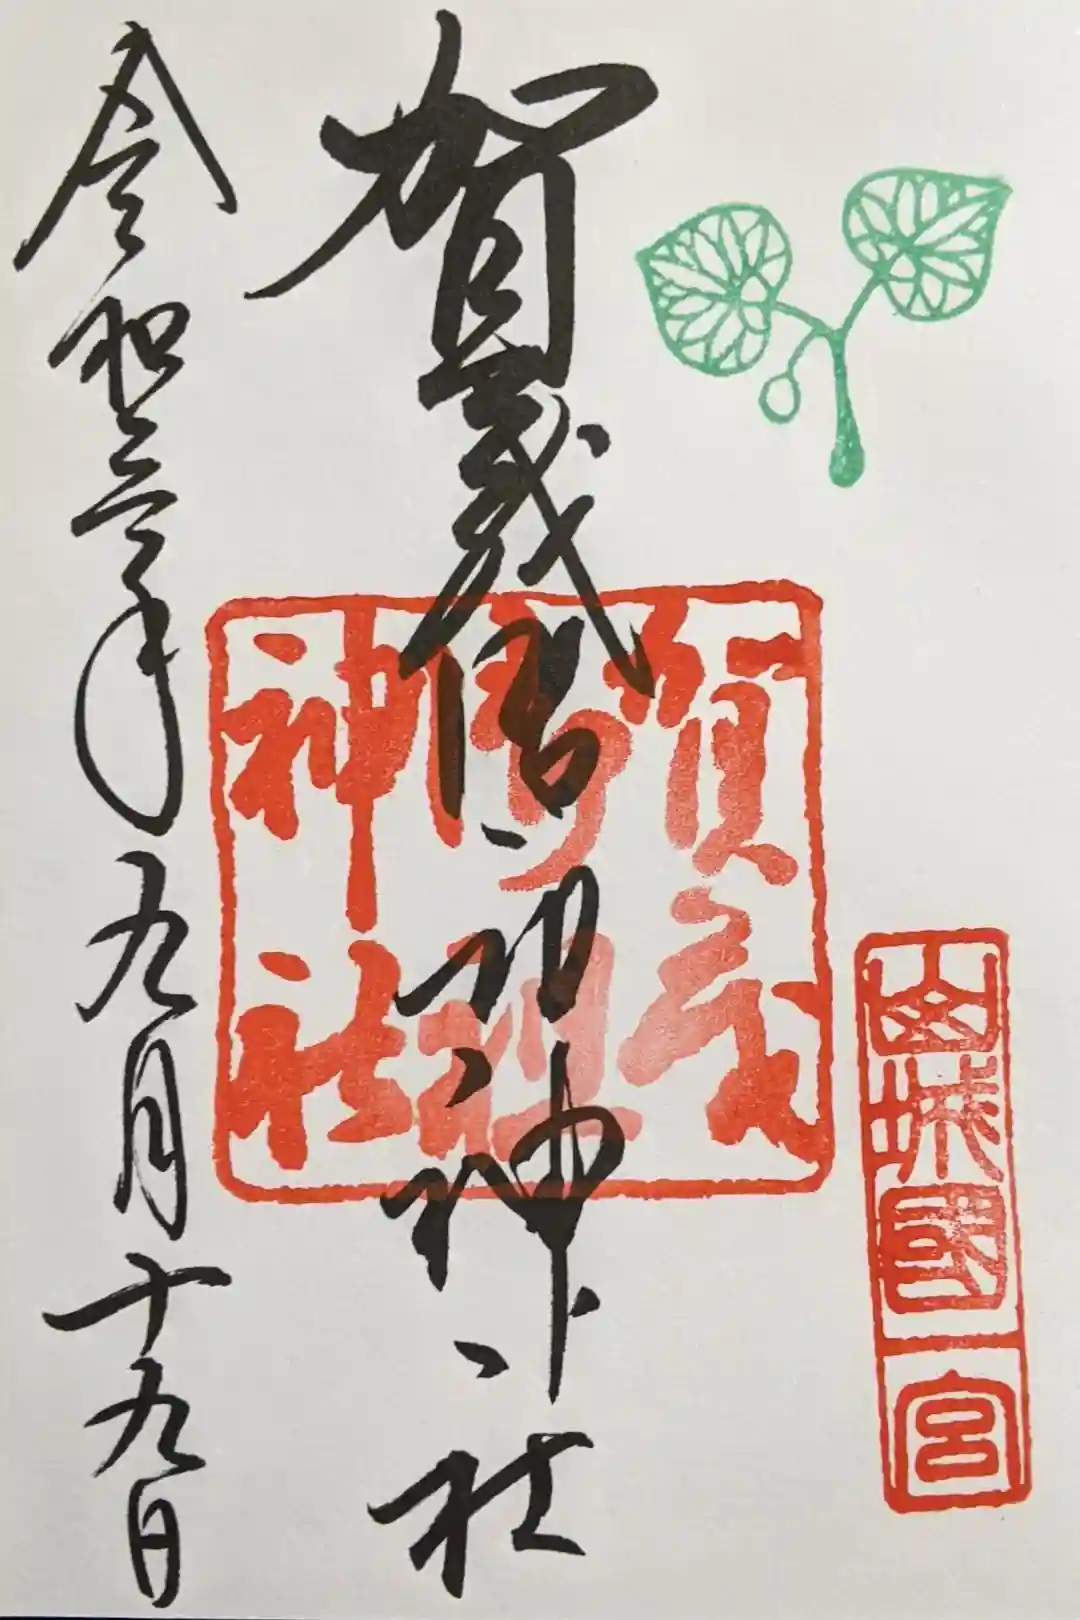 山城國一宮
賀茂御祖神社
賀茂御祖神社
令和三年九月十九日